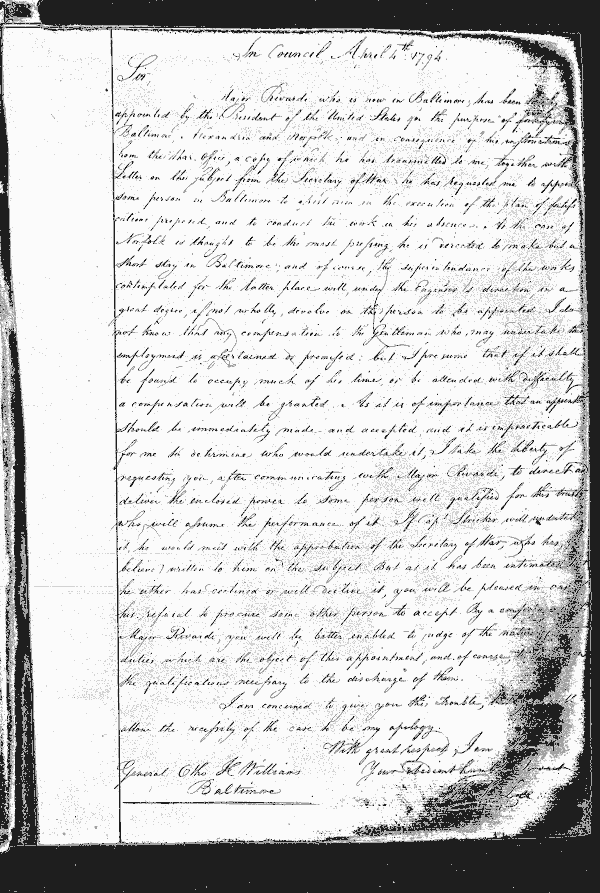 In Council April 4th 1794
Sir,
Major Rivardi, who is now in Baltimore, has been
appointed by the President of the United States for the purpose of
Baltimore, Alexandria and Norfolk; and in consequence of his instructions
from the War Office, a copy of which he has transmitted to me, together with
Letter on the subject from the Secretary of War, he has requested me to appoint
some person in Baltimore to assist him in the execution of the plan of fortifi
cations proposed, and to conduct the work in his absence. As the case of
Norfolk is thought to be the most pressing, he is directed to make but a
short stay in Baltimore; and of course, the superintendance of the works
contemplated for the latter place will under the Engineer's direction in a
great degree, if not wholly, devolve on the person to be appointed. I do
not know that any compensation to the Gentleman who may undertake this
employment is ascertained or promised; but I presume that if it shall
be found to occupy much of his time or be attended with difficulty
a compensation will be granted. As it is of importance that an appointment
should be immediately made and accepted, and it is impracticable
for me to determine who would undertake it, I take the liberty of
requesting you, after communicating with Major Rivardi, to direct and
deliver the enclosed power to some person well qualified for this trust,
who will assume the performance of it. If Capt. Stricker will undertake
it, he would meet with the approbation of the Secretary of War, who has, I
believe, written to him on the subject. But as it has been intimated
he either has declined or will decline it, you will be pleased in case
his refusal to procure some other person to accept. By a
Major Rivardi, you will be better enabled to judge of the nature
duties which are the object of this appointment, and, of course,
the qualifications necessary to the discharge of them.
I am concerned to give you this trouble,
allow the necessity of the case to be my apology.
With great respect, I am
General Otho H. Williams Your obedient
Baltimore